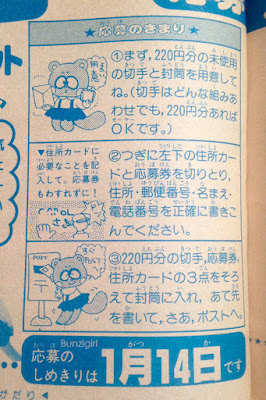 ★応募のきまり★
①まず、220円分の未使用
の切手と封筒を用意して
ね。(切手はどんな組みあ
わせでも、220円分あれば
OKです。)
▼住所カードに
必要なことを記
入して。応募券
もわすれずに!
②つぎに左下の住所カー
ドと応募券を切りとり、
住所・郵便番号・名まえ・
電話番号を正確に書きこ
んでください。
POST
③220円分の切手、応募券、
住所カードの3点をそろ
えて封筒に入れ、あて先
を書いて、さあ、ポストへ。
Bunzigirl
応募の
しめきりは
1月14日です